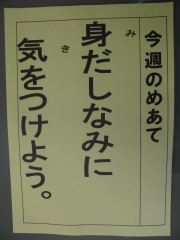 今週のめあて
身だしなみに
み
気をつけよう。
き